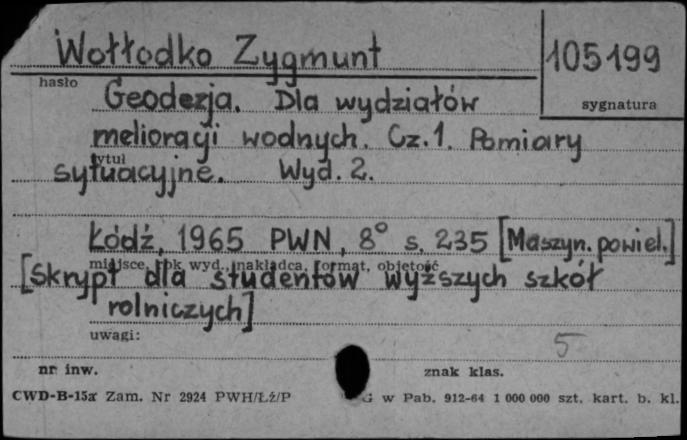 Wołłodko Zygmunt
105199
hasło
sygnatura
Geodezja. Dla wydziałów
melioracji wodnych. Cz.1. Pomiary
tytuł
sytuacyjne. Wyd. 2.
Łódź, 1965 PWN, 8° s. 235 [Maszyn. powiel.]
miejsce, rok wyd., nakładca, format, objętość
[Skrypt dla studentów wyższych szkół
rolniczych]
uwagi:
5
nr inw.
znak klas.
CWD-B-15a Zam. Nr 2924 PWH/Łż/P
G w Pab. 912-64 1 000 000 szt. kart. b. kl.